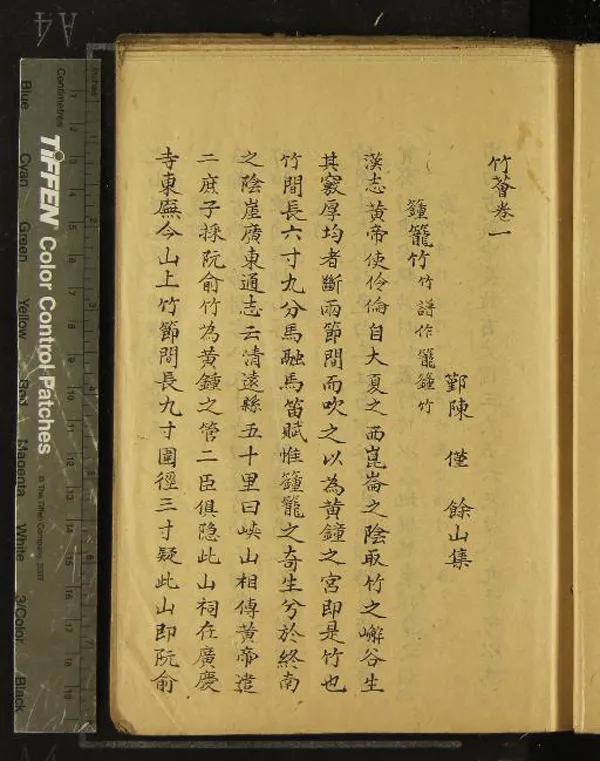 竹薈卷一
鄞陳 僅 餘山集
籦籠竹 竹譜作籠籦竹
漢志黃帝使伶倫自大夏之西崑崙之陰取竹之嶰谷生
其竅厚均者斷兩節間而吹之以為黃鐘之宮即是竹也
竹間長六寸九分馬融馬笛賦惟籦籠之奇生兮於終南
之陰崖廣東通志云清遠縣五十里曰峽山相傳黃帝遣
二庶子採阮俞竹為黃鍾之管二臣俱隐此山祠在廣慶
寺東廡今山上竹節間長九寸圍徑三寸疑此山即阮俞
TIFFEN Color Control Patches
© The Tiffen Company, 2007
Centimetres
Inches
Blue
Cyan
Green
Yellow
Red
Magenta
White
3/Color
Black
A4